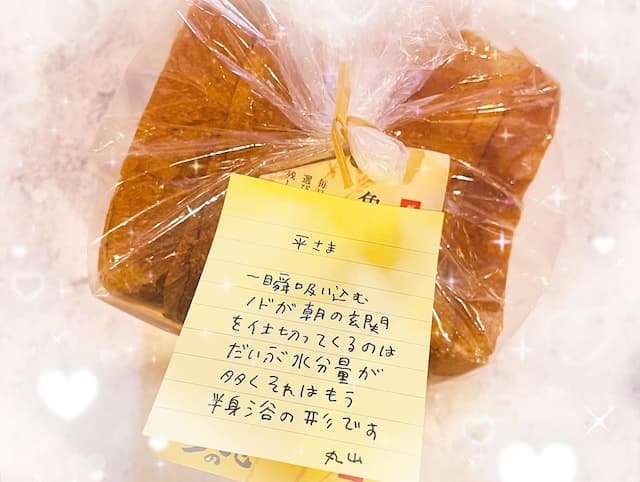 平さま
一瞬吸い込む
ノドが朝の玄関
を仕切ってくるのは
だいぶ水分量が
多くそれはもう
半身浴の形です
丸山